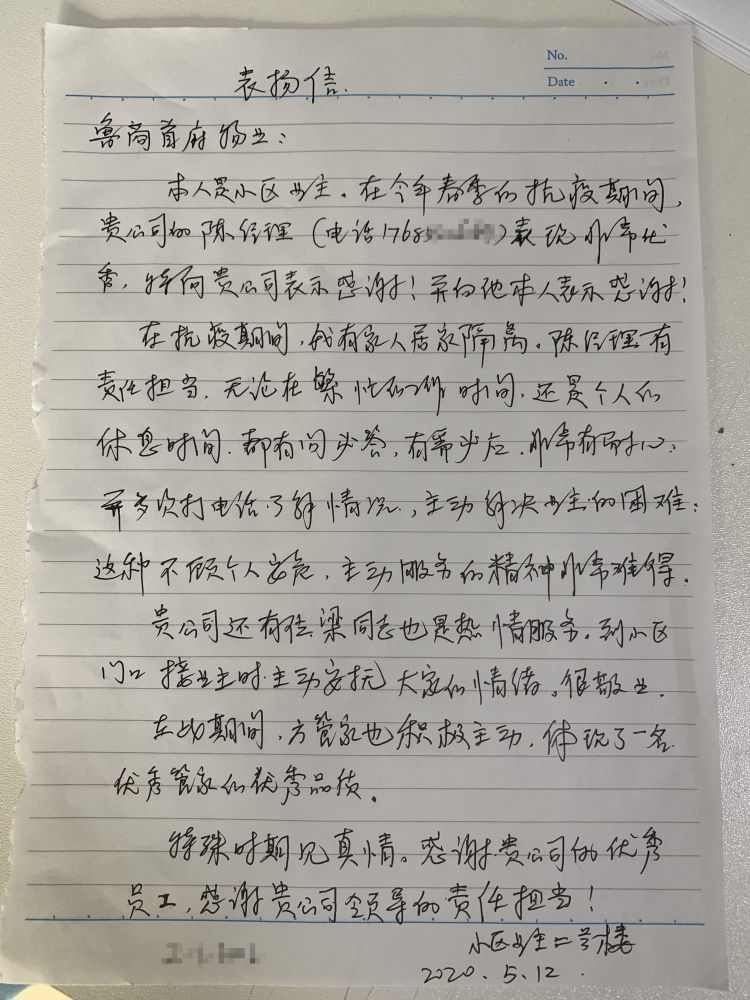 No.
Date
表扬信
鲁商首府物业:
本人是小区业主。在今年春季的抗疫期间,
贵公司的陈经理(电话17685)表现非常优
秀,特向贵公司表示感谢!并向他本人表示感谢!
在抗疫期间,我有家人居家隔离。陈经理有
责任担当,无论在繁忙的工作时间,还是个人的
休息时间,都有问必答,有需必应,非常有耐心;
并多次打电话了解情况,主动解决业主的困难;
这种不顾个人安危,主动服务的精神非常难得。
贵公司还有 梁同志也是热情服务。到小区
门口接业主时主动安抚大家的情绪。很敬业。
在此期间,方管家也积极主动,体现了一名
优秀管家的优秀品质。
特殊时期见真情。感谢贵公司的优秀
员工,感谢贵公司领导的责任担当!
小区业主二号楼
2020.5.12.